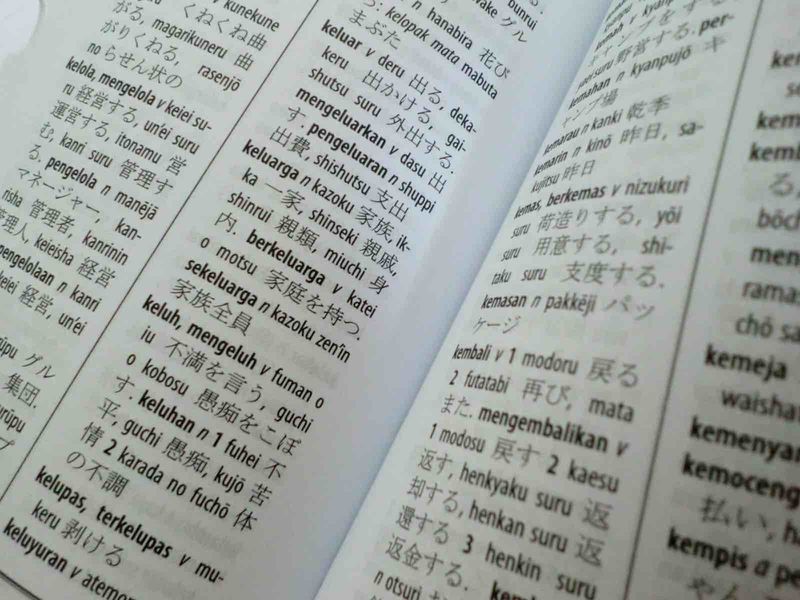 kunekune
くねくね曲
がる, magarikuneru 曲
がりくねる, rasenjō
no らせん状の
kelola, mengelola v keiei su-
ru 経営する, un'ei suru
運営する, itonamu 営
む, kanri suru 管理す
る. pengelola n manējā
マネージャー, kan-
risha 管理者, kanrinin
管理人, keieisha 経営
pengelolaan n kanri
経営, un'ei
グル
集団.
n hanabira 花び
kelopak mata mabuta
まぶた
keluar v deru 出る, deka-
keru 出かける, gai-
shutsu suru 外出する.
mengeluarkan v dasu 出
す. pengeluaran n shuppi
出費, shishutsu 支出
keluarga n kazoku 家族, ik-
ka 一家, shinseki 親戚,
shinrui 親類, miuchi 身
内. berkeluarga v katei
o motsu 家庭を持つ.
sekeluarga n kazoku zen'in
家族全員
keluh, mengeluh v fuman o
iu 不満を言う, guchi
o kobosu 愚痴をこぼ
す. keluhan n 1 fuhei 不
平, guchi 愚痴, kujō 苦
情 2 karada no fuchō 体
の不調
kelupas, terkelupas v mu-
keru 剥ける
keluyuran v
bunrui
グル
キャンプをする. per-
野営する.
kemahan n kyanpujō キ
ャンプ場
kemarau n kanki 乾季
kemarin n kinō 昨日, sa-
kujitsu 昨日
kemas, berkemas v nizukuri
suru 荷造りする, yōi
suru 用意する, shi-
taku suru 支度する.
kemasan n pakkēji パッ
ケージ
kembali v 1 modoru 戻る
2 futatabi 再び, mata
また. mengembalikan v
1 modosu 戻す 2 kaesu
返す, henkyaku suru 返
却する, henkan suru 返
還する 3 henkin suru
返金する.
n otsuri
る,
ramas
chō sa
kemeja
waisha
kemenyan
kemoceng
払い,
kempis a pe